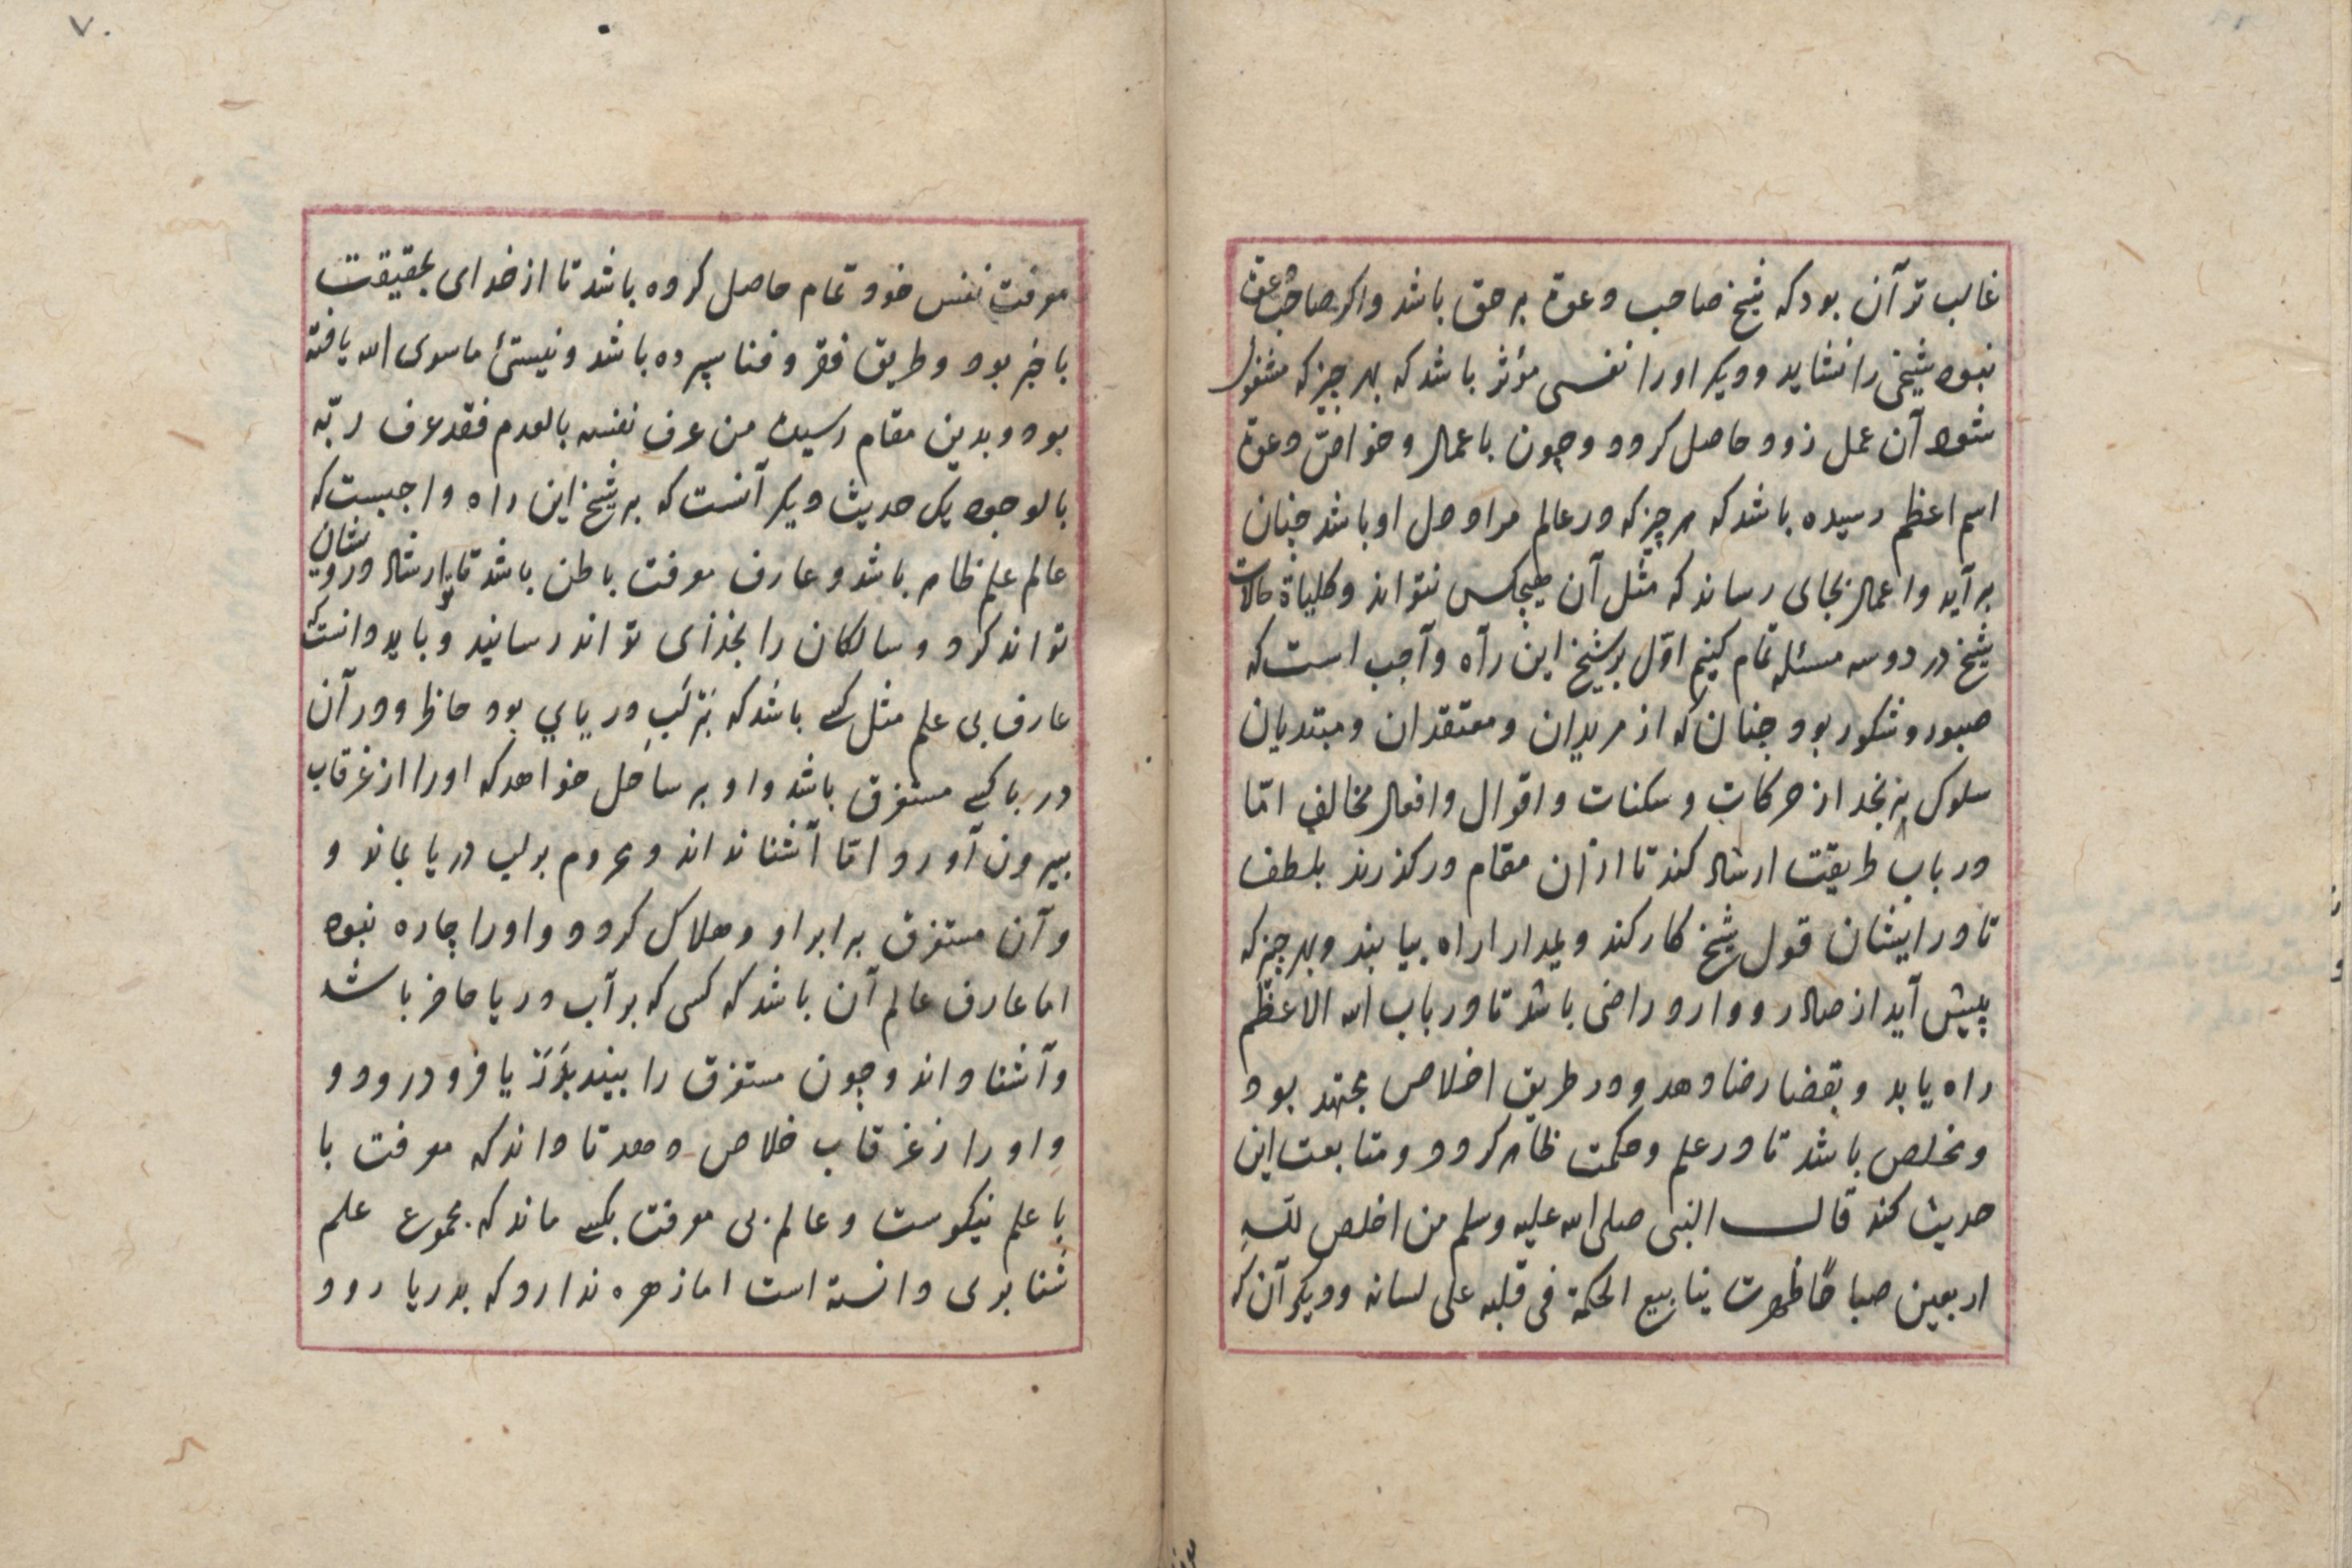 غالب تر آن بود که شیخ صاحب دعوة بر حق باشد و اکر صاحب دعوة
نبود شیخی را نشاید و دیکر او را نفسی مؤثر باشد که بهر چیز که مشغول
شود آن عمل زود حاصل کردد و چون باعمال و خواص دعوة
اسم اعظم رسیده باشد که هر چیز که در عالم مراد دل او باشد چنان
بر آید و اعمال بجای رساند که مثل آن هیچکس نتواند و کلیاة حالات
شیخ در دو سه مسئله تمام کنیم اوّل بر شیخ این راه واجب است که
صبور و شکور بود چنان که از مریدان و معتقدان و مبتدیان
سلوک نرنجد از حرکات و سکنات و اقوال و افعال مخالف امّا
در باب طریقت ارشاد کند تا از آن مقام در کذرند بلطف
تا در ایشان قول شیخ کار کند و بمدارا راه بیابند و بهر چیز که
پیش آید از صادر و وارد راضی باشد تا در باب الله الاعظم
راه یابد و بقضا رضا دهد و در طریق اخلاص مجتهد بود
و مخلص باشد تا در علم و حکمت ظاهر کردد و متابعت این
حدیث کند قال النبی صلی الله علیه وسلم من اخلص للّه
اربعین صباحًا ظهرت ینابیع الحکمة فی قلبه علی لسانه و دیکر آن که
۷۰
معرفت نفس خود تمام حاصل کرده باشد تا از خدای بحقیقت
با خبر بود و طریق فقر و فنا سپرده باشد و نیستئ ماسوی الله یافته
بود و بدین مقام رسیده من عرف نفسه بالعدم فقد عرف ربّه
بالوجود یک حدیث دیکر آنست که بر شیخ این راه واجبست که
عالم علم ظاهر باشد و عارف معرفت باطن باشد تا ارشاد درویشان
تواند کرد و سالکان را بخدای تواند رسانید و باید دانست که
عارف بی علم مثل کسی باشد که بر لب دریایی بود حاظر و در آن
دریا کسی مستغرق باشد و او بر ساحل خواهد که او را از غرقاب
بیرون آورد امّا آشنا نداند و محروم بر لب دریا بماند و
و آن مستغرق برابر او هلاک کردد و او را چاره نبود
اما عارف عالم آن باشد که کسی که بر آب دریا حاضر باشد
و آشنا داند و چون مستغرق را بیند بدریا فرو در رود و
و او را از غرقاب خلاص دهد تا داند که معرفت با
با علم نیکوست و عالم بی معرفت بکسی ماند که مجموع علم
شنا بری دانسته است اما زهره ندارد که بدریا رود